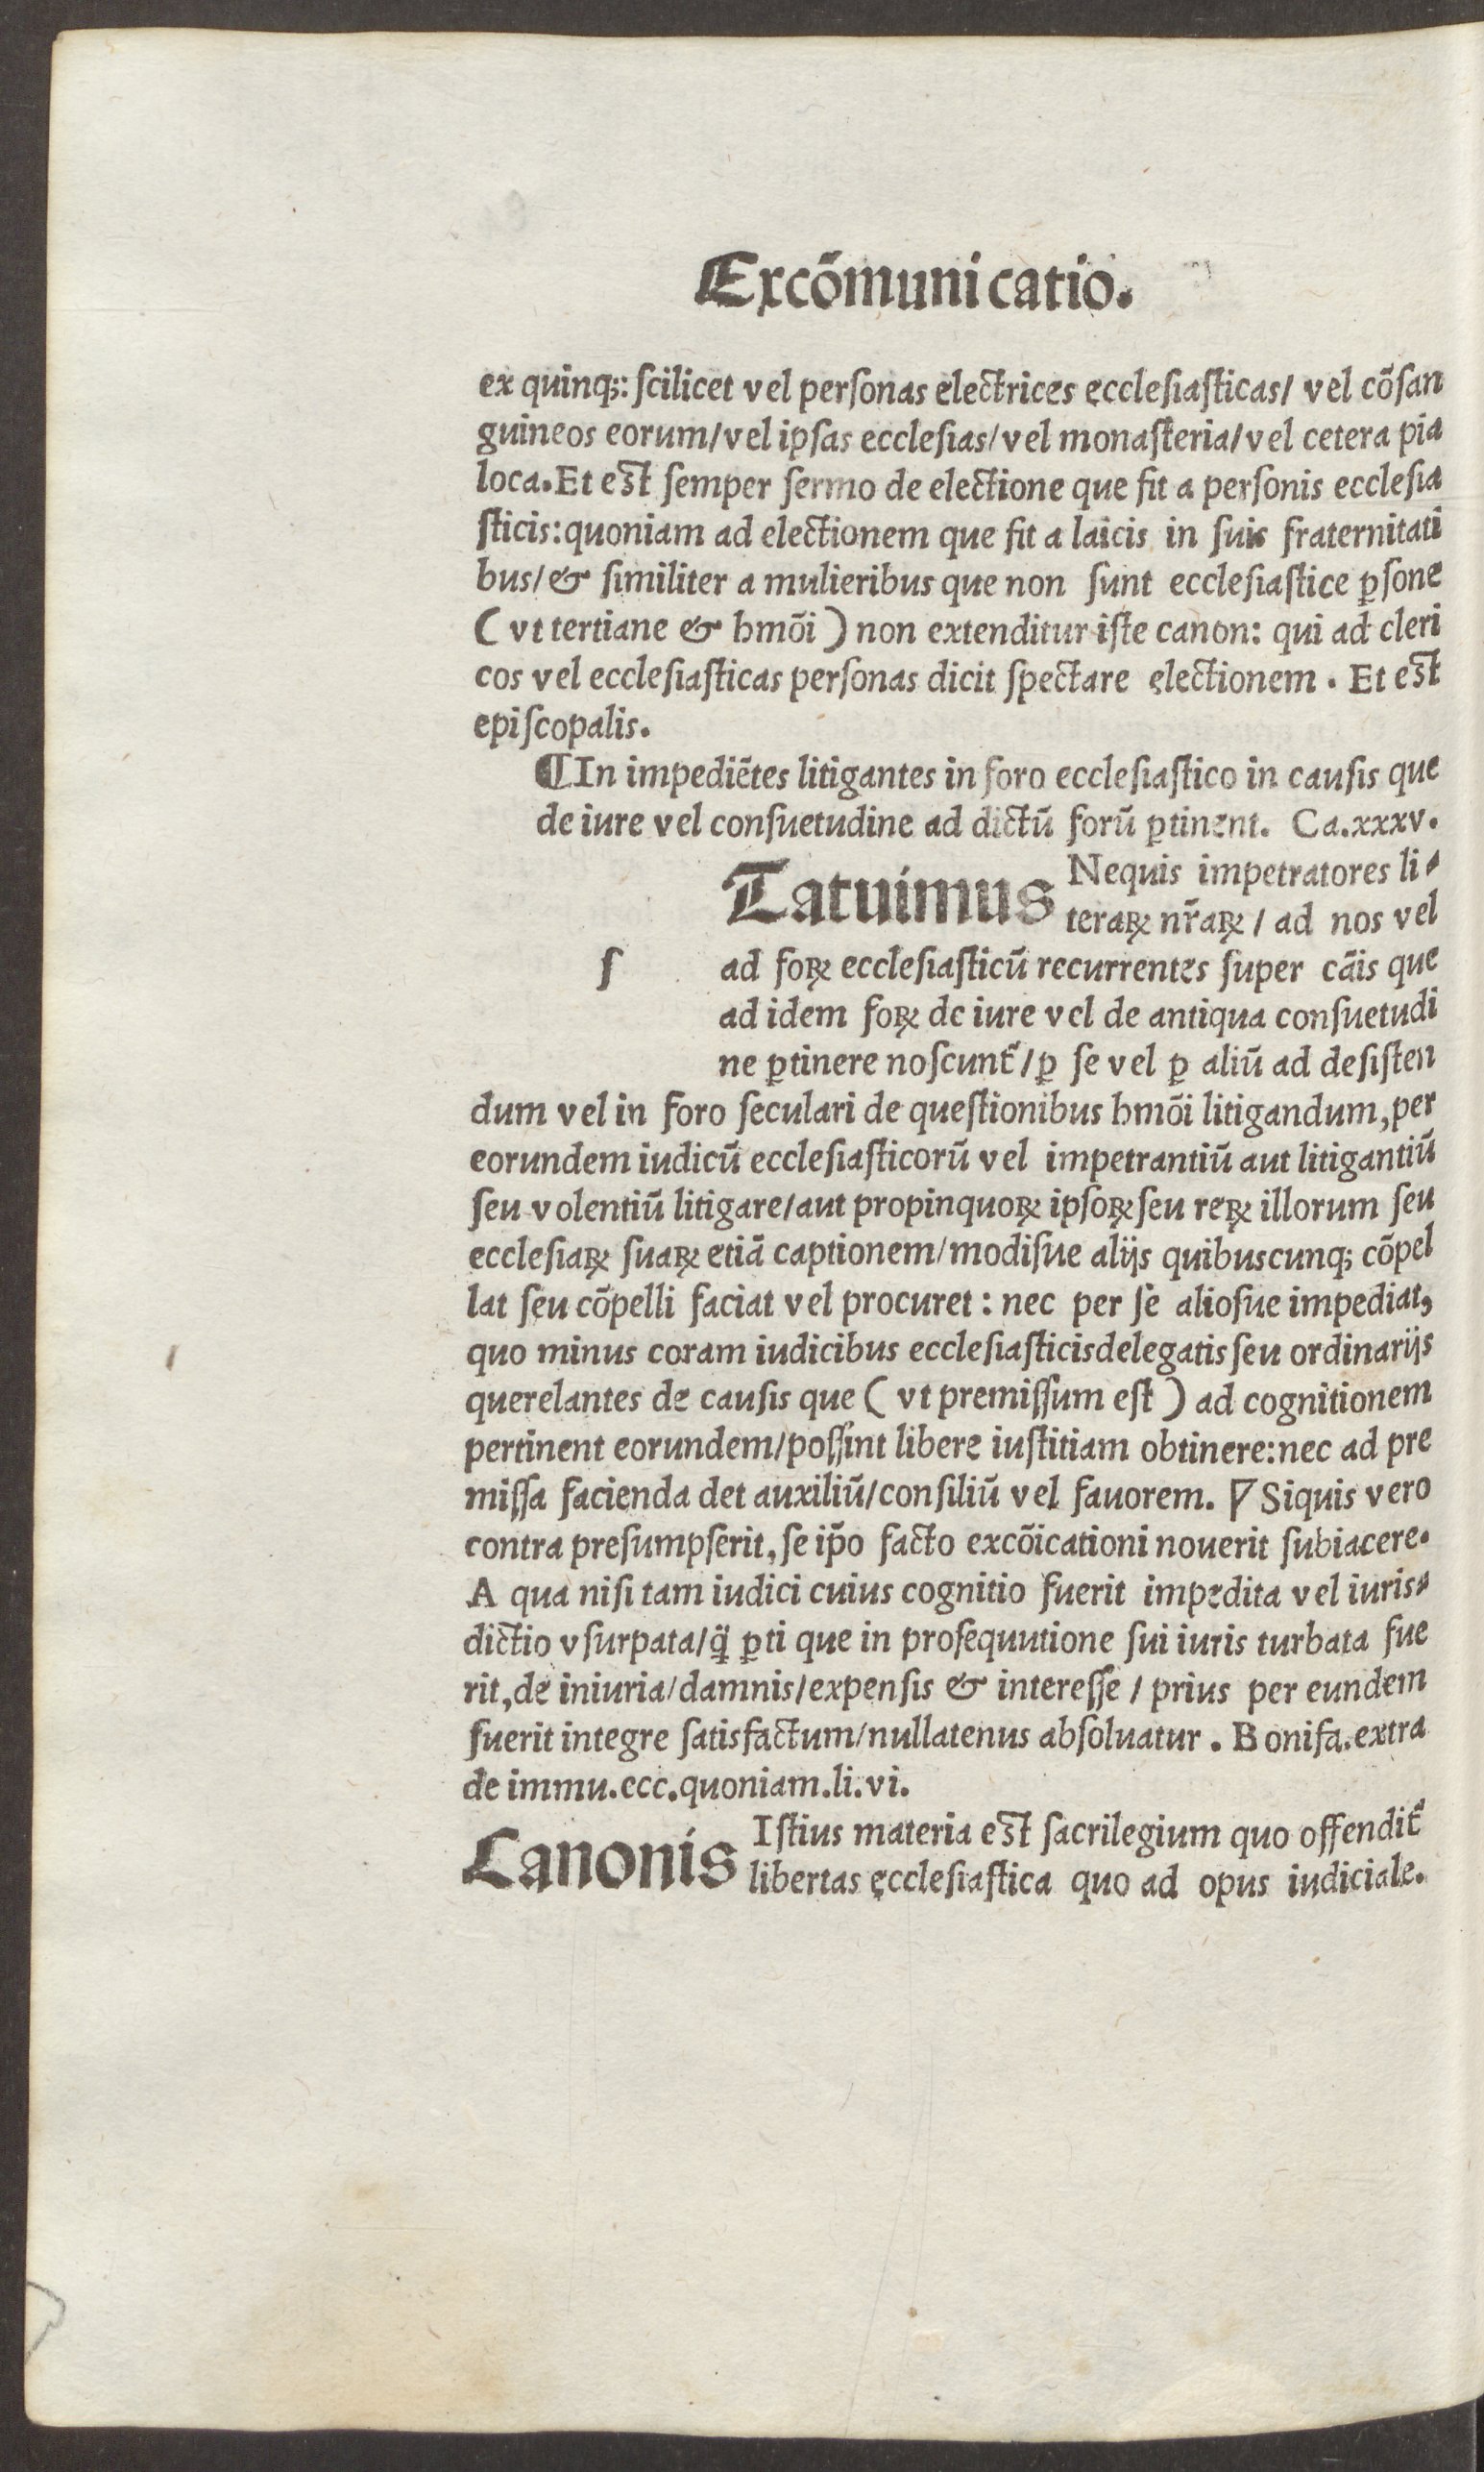 Excõmunicatio.
ex quinqꝫ: ſcilicet vel perſonas electrices ęccleſiaſticas/ vel cõſan
guineos eorum/vel ipſas eccleſias/vel monaſteria/vel cetera pia
loca. Et est̃ ſemper ſermo de electione que fit a perſonis eccleſia
ſticis: quoniam ad electionem que fit a laicis in ſuis fraternitati
bus/& ſimiliter a mulieribus que non ſunt eccleſiaſtice ꝑſone
( vt tertiane & hmõi ) non extenditur iſte canon: qui ad cleri
cos vel eccleſiaſticas perſonas dicit ſpectare ęlectionem . Et est̃
epiſcopalis.
¶In impediẽtes litigantes in foro eccleſiaſtico in cauſis que
de iure vel conſuetudine ad dictũ forũ ꝑtinent. Ca.xxxv.
Tatuimus Nequis impetratores li⸗
teraꝝ nr̃aꝝ / ad nos vel
ſ ad foꝝ eccleſiaſticũ recurrentes ſuper cãis que
ad idem foꝝ de iure vel de antiqua conſuetudi
ne ꝑtinere noſcunt̃ /ꝑ ſe vel ꝑ aliũ ad deſiſten
dum vel in foro ſeculari de queſtionibus hmõi litigandum, per
eorundem iudicũ eccleſiaſticorũ vel impetrantiũ aut litigantiũ
ſeu volentiũ litigare/aut propinquoꝝ ipſoꝝ ſeu reꝝ illorum ſeu
eccleſiaꝝ ſuaꝝ etiã captionem/modiſue alijs quibuscunqꝫ cõpel
lat ſeu cõpelli faciat vel procuret : nec per ſe alioſue impediat,
quo minus coram iudicibus eccleſiaſticisdelegatis ſeu ordinarijs
querelantes de cauſis que ( vt premiſſum eſt ) ad cognitionem
pertinent eorundem/poſſint libere iuſtitiam obtinere: nec ad pre
miſſa facienda det auxiliũ/conſiliũ vel fauorem. ∇ Siquis vero
contra preſumpſerit, ſe ip̃o facto excõicationi nouerit ſubiacere.
A qua niſi tam iudici cuius cognitio fuerit impedita vel iuris⸗
dictio vſurpata/q̈̃ ꝑti que in proſequutione ſui iuris turbata fue
rit, de iniuria/damnis/expenſis & intereſſe / prius per eundem
fuerit integre ſatisfactum/nullatenus abſoluatur . Bonifa. extra
de immu. ecc. quoniam. li. vi.
Canonis Iſtius materia est̃ ſacrilegium quo offendit̃
libertas ęccleſiaſtica quo ad opus iudiciale.